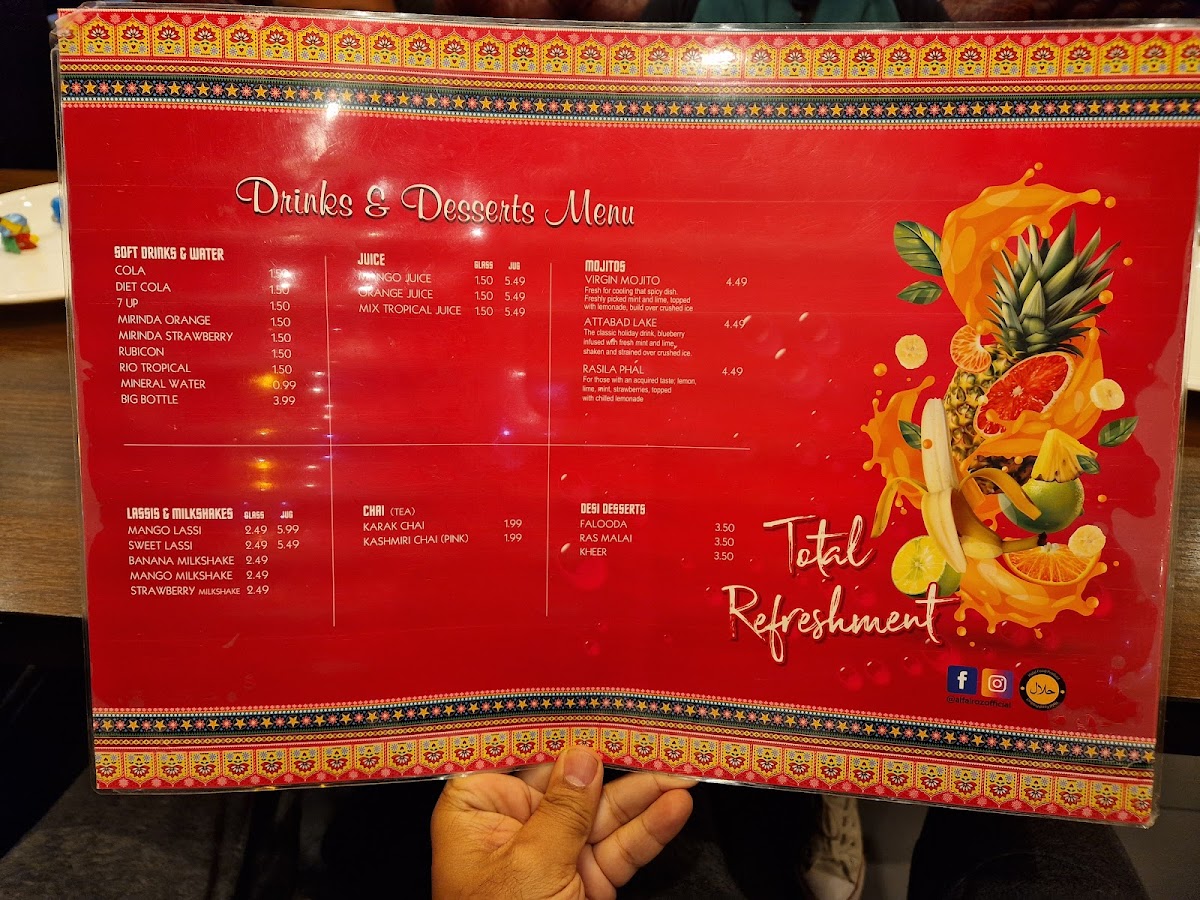 Drinks & Desserts Menu
SOFT DRINKS & WATER
COLA 1.50
DIET COLA 1.50
7 UP 1.50
MIRINDA ORANGE 1.50
MIRINDA STRAWBERRY 1.50
RUBICON 1.50
RIO TROPICAL 1.50
MINERAL WATER 0.99
BIG BOTTLE 3.99
JUICE GLASS JUG
MANGO JUICE 1.50 5.49
ORANGE JUICE 1.50 5.49
MIX TROPICAL JUICE 1.50 5.49
MOJITOS
VIRGIN MOJITO 4.49
Fresh for cooling that spicy dish.
Freshly picked mint and lime, topped
with lemonade, build over crushed ice
ATTABAD LAKE 4.49
The classic holiday drink, blueberry
infused with fresh mint and lime,
shaken and strained over crushed ice.
RASILA PHAL 4.49
For those with an acquired taste; lemon,
lime, mint, strawberries, topped
with chilled lemonade
LASSIS & MILKSHAKES GLASS JUG
MANGO LASSI 2.49 5.99
SWEET LASSI 2.49 5.49
BANANA MILKSHAKE 2.49
MANGO MILKSHAKE 2.49
STRAWBERRY MILKSHAKE 2.49
CHAI (TEA)
KARAK CHAI 1.99
KASHMIRI CHAI (PINK) 1.99
DESI DESSERTS
FALOODA 3.50
RAS MALAI 3.50
KHEER 3.50
Total
Refreshment
@alfairozofficial
حلال